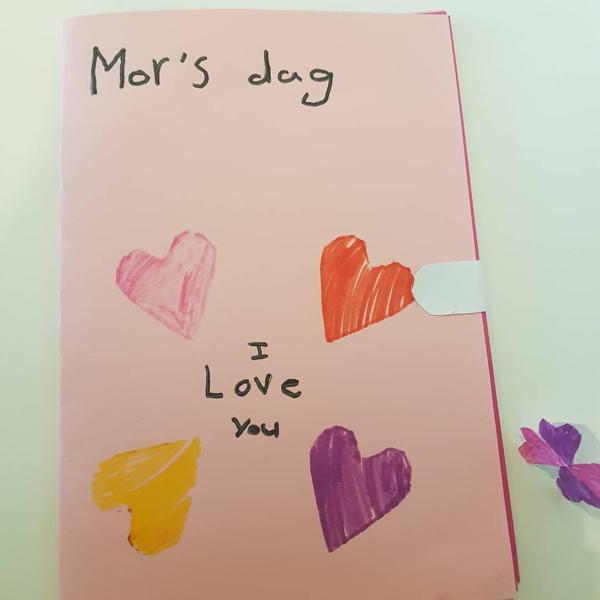 Mor's dag
I
Love
You